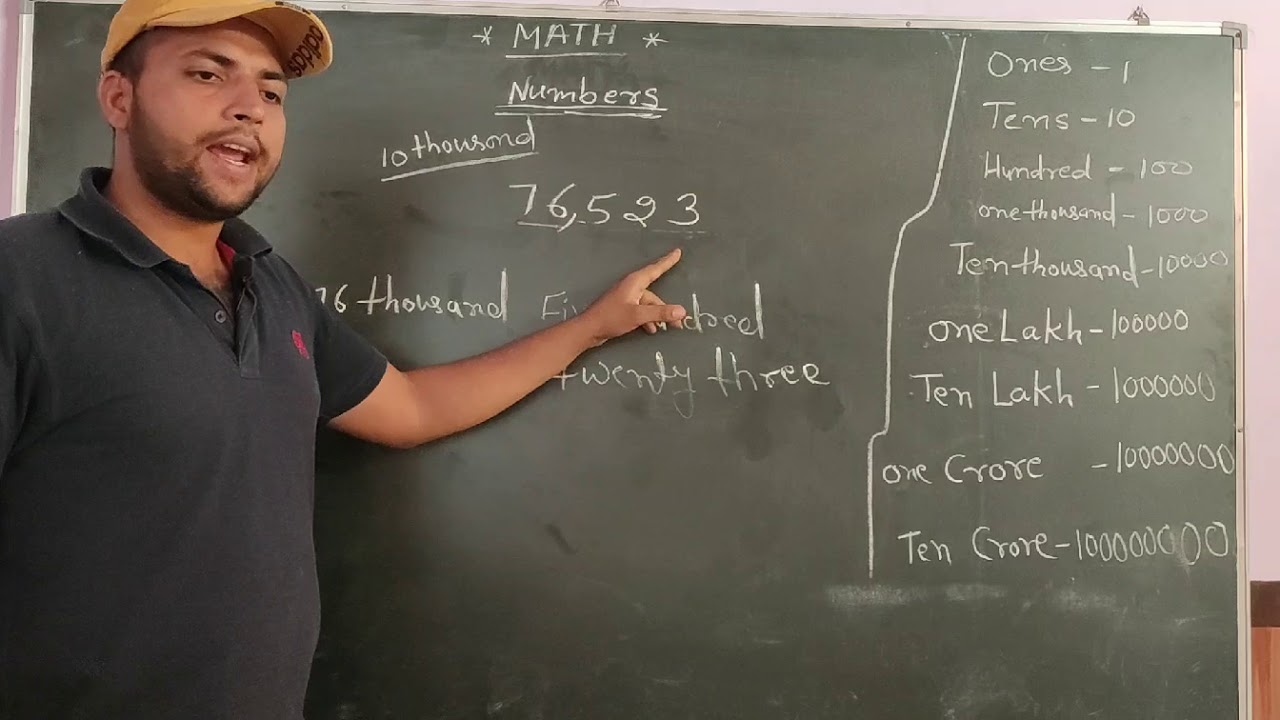 * MATH *
Numbers
10 thousond
76,523
thousand
twenty three
Ones - 1
Tens - 10
Hundred - 100
one thousand - 1000
Ten thousand - 10000
one Lakh - 100000
Ten Lakh - 1000000
one Crore - 10000000
Ten Crore - 100000000